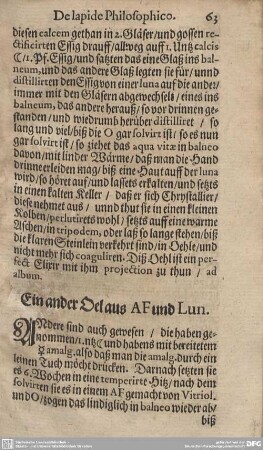 De lapide Philosophico. 63
diesen calcem gethan in 2. Gläser/und gossen re-
ctificirten Essig drauff/allweg auff 1. Untz calcis
C/1. Pf. Essig/und satzten das eine Glaß ins bal-
neum, und das andere Glaß legten sie für/ unnd
distillirten den Essig von einer luna auf die ander/
immer mit den Gläsern abgewechselt/ eines ins
balneum, das andere herauß/ so vor drinnen ge-
standen/ und wiedrumb herüber distilliret / so
lang und viel/ biß die O gar solvirt ist/ so es nun
gar solvirt ist/ so ziehet das aqua vitæ in balneo
davon/ mit linder Wärme/ daß man die Hand
drinnen erleiden mag/ biß eine Haut auff der luna
wird/ so höret auf/ und lassets erkalten/ und setzts
in einen kalten Keller / daß er sich Chrystallier/
diese nehmet aus / unnd thut sie in einen kleinen
Kolben/ perlutirets wohl/ setzts auff eine warme
Aschen/ in tripodem, oder laß so lange stehen/ biß
die klaren Steinlein verkehret sind/ in Oehle/ und
nicht mehr sich coaguliren. Diß Oehl ist ein per-
fect Elixir mit ihm projection zu thun / ad
album.
Ein ander Oel aus AF und Lun.
ANdere sind auch gewesen / die haben ge-
nommen/ 1. ntz. C und habens mit bereitetem
amalg. also daß man die amalg. durch ein
leinen Tuch möcht drücken. Darnach setzten sie
es 6. Wochen in eine temperirte Hitz/ nach dem
solvirten sie es in einem AF gemacht von Vitriol.
und O/ zogen das lindiglich in balneo wieder ab/
biß